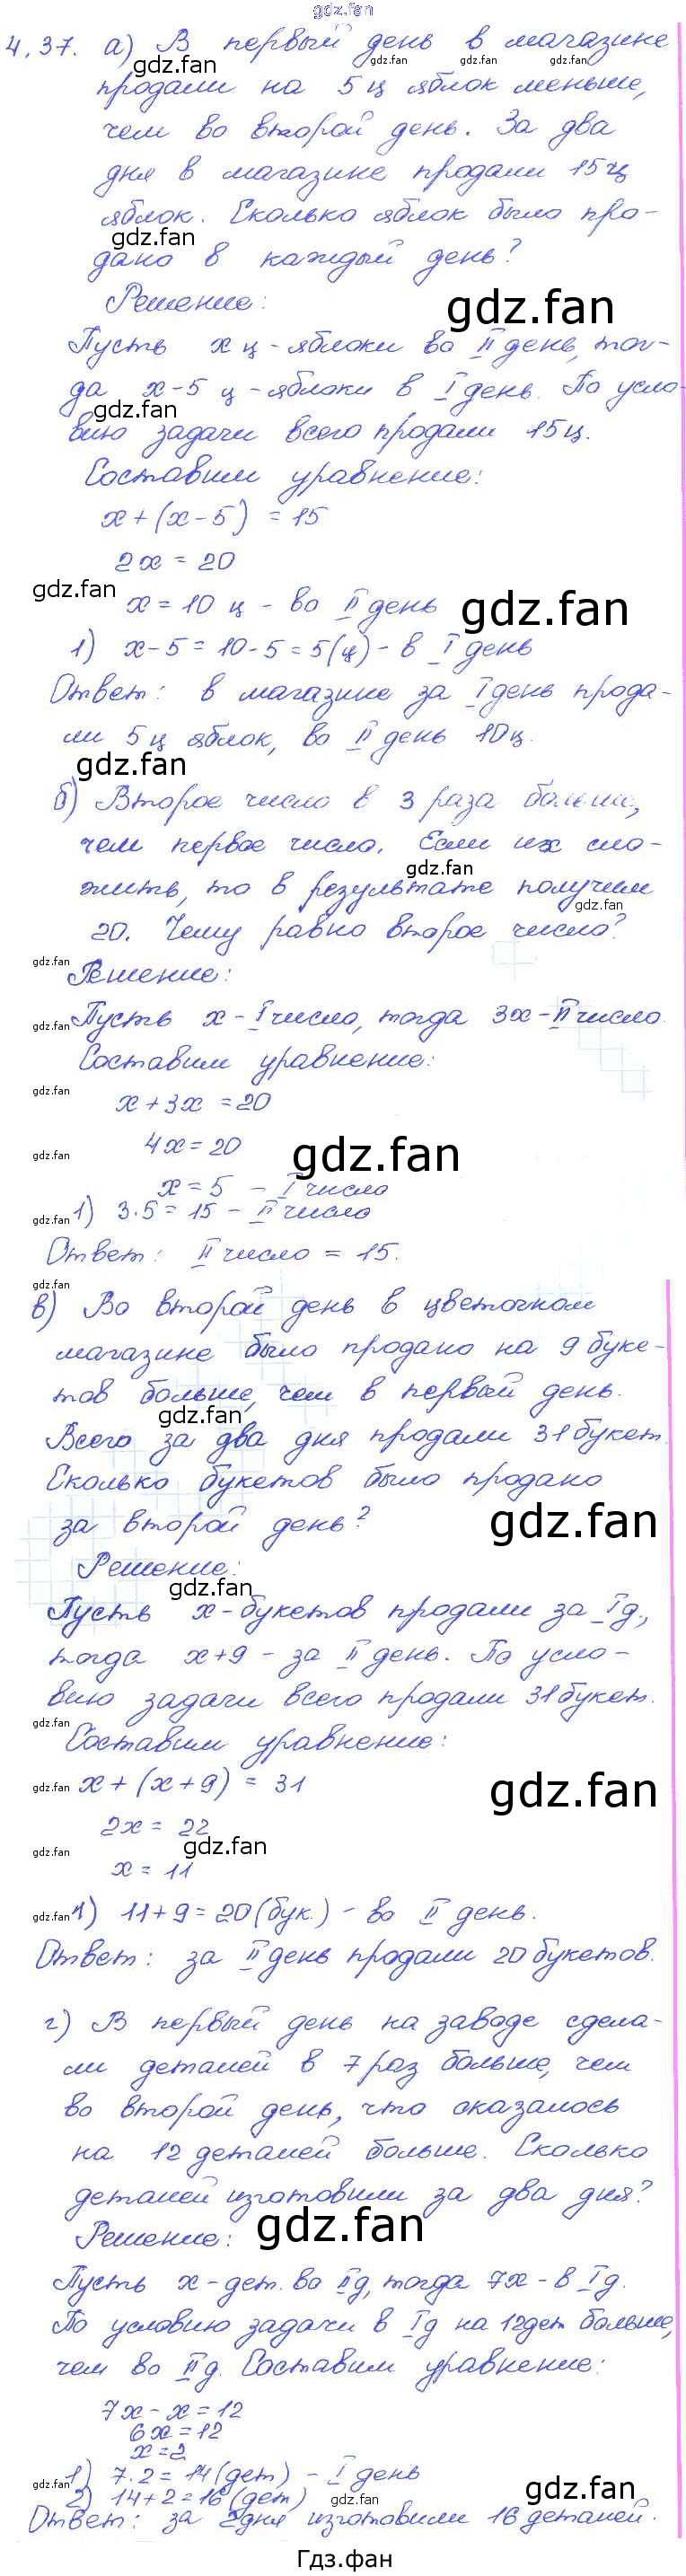 gdz.fan
4.37. а) В первый день в магазине
gdz.fan gdz.fan gdz.fan gdz.fan
продали на 5 ц яблок меньше,
чем во второй день. За два
дня в магазине продали 15 ц
яблок. Сколько яблок было про-
gdz.fan
дано в каждый день?
Решение:
gdz.fan
Пусть x ц - яблоки во II день, тог-
да x-5 ц - яблоки в I день. По усло-
gdz.fan
вию задачи всего продали 15 ц.
Составим уравнение:
x+(x-5) = 15
2x = 20
gdz.fan
x = 10 ц - во II день
gdz.fan
1) x-5 = 10-5 = 5(ц) - в I день
Ответ: в магазине за I день прода-
ли 5 ц яблок, во II день 10 ц.
gdz.fan
б) Второе число в 3 раза больше,
чем первое число. Если их сло-
gdz.fan
жить, то в результате получим
gdz.fan
20. Чему равно второе число?
gdz.fan
Решение:
gdz.fan Пусть x - I число, тогда 3x - II число.
Составим уравнение:
gdz.fan
x + 3x = 20
4x = 20
gdz.fan gdz.fan
x = 5 - I число
gdz.fan 1) 3·5 = 15 - II число
Ответ: II число = 15.
gdz.fan
в) Во второй день в цветочном
магазине было продано на 9 буке-
тов больше, чем в первый день.
gdz.fan
Всего за два дня продали 31 букет.
Сколько букетов было продано
за второй день?
gdz.fan
Решение:
gdz.fan
Пусть x - букетов продали за I д,
тогда x+9 - за II день. По усло-
вию задачи всего продали 31 букет.
gdz.fan
Составим уравнение:
gdz.fan x + (x+9) = 31
gdz.fan
2x = 22
gdz.fan gdz.fan
x = 11
gdz.fan 1) 11+9 = 20 (бук.) - во II день.
Ответ: за II день продали 20 букетов.
г) В первый день на заводе сдела-
ли деталей в 7 раз больше, чем
во второй день, что оказалось
на 12 деталей больше. Сколько
деталей изготовили за два дня?
Решение:
gdz.fan
Пусть x - дет. во II д, тогда 7x - в I д.
По условию задачи в I д на 12 дет больше,
чем во II д. Составим уравнение:
7x - x = 12
6x = 12
x = 2
gdz.fan 1) 7·2 = 14 (дет) - I день
gdz.fan
2) 14+2 = 16 (дет)
gdz.fan
Ответ: за 2 дня изготовили 16 деталей.
gdz.fan
Гдз.фан